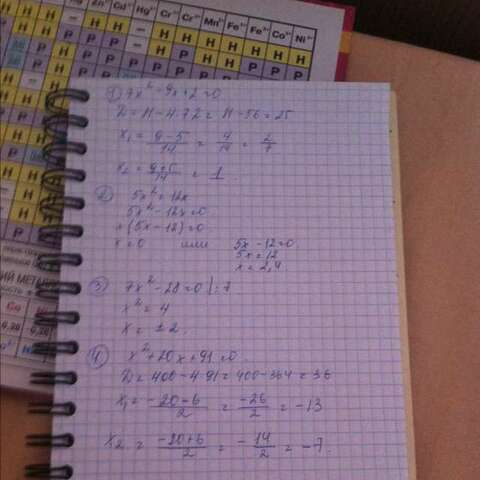 Zn²⁺ Cd²⁺ Hg²⁺ Cr²⁺ Cr³⁺ Mn²⁺ Fe²⁺ Fe³⁺ Co²⁺ Ni²⁺
1) 7x² - 9x + 2 = 0
x₁ = (9 - 5)/14 = 4/14 = 2/7
x₂ = (9 + 5)/14 = 1.
2) 5x² = 12x
5x² - 12x = 0
x(5x - 12) = 0
x = 0 или 5x - 12 = 0.
5x = 12
x = 2,4
3) 7x² - 28 = 0 | : 7
x² = 4
x = ± 2.
4) x² + 20x + 91 = 0.
D = 400 - 4·91 = 400 - 364 = 36
x₁ = (-20 - 6)/2 = -26/2 = -13
x₂ = (-20 + 6)/2 = -14/2 = -7.